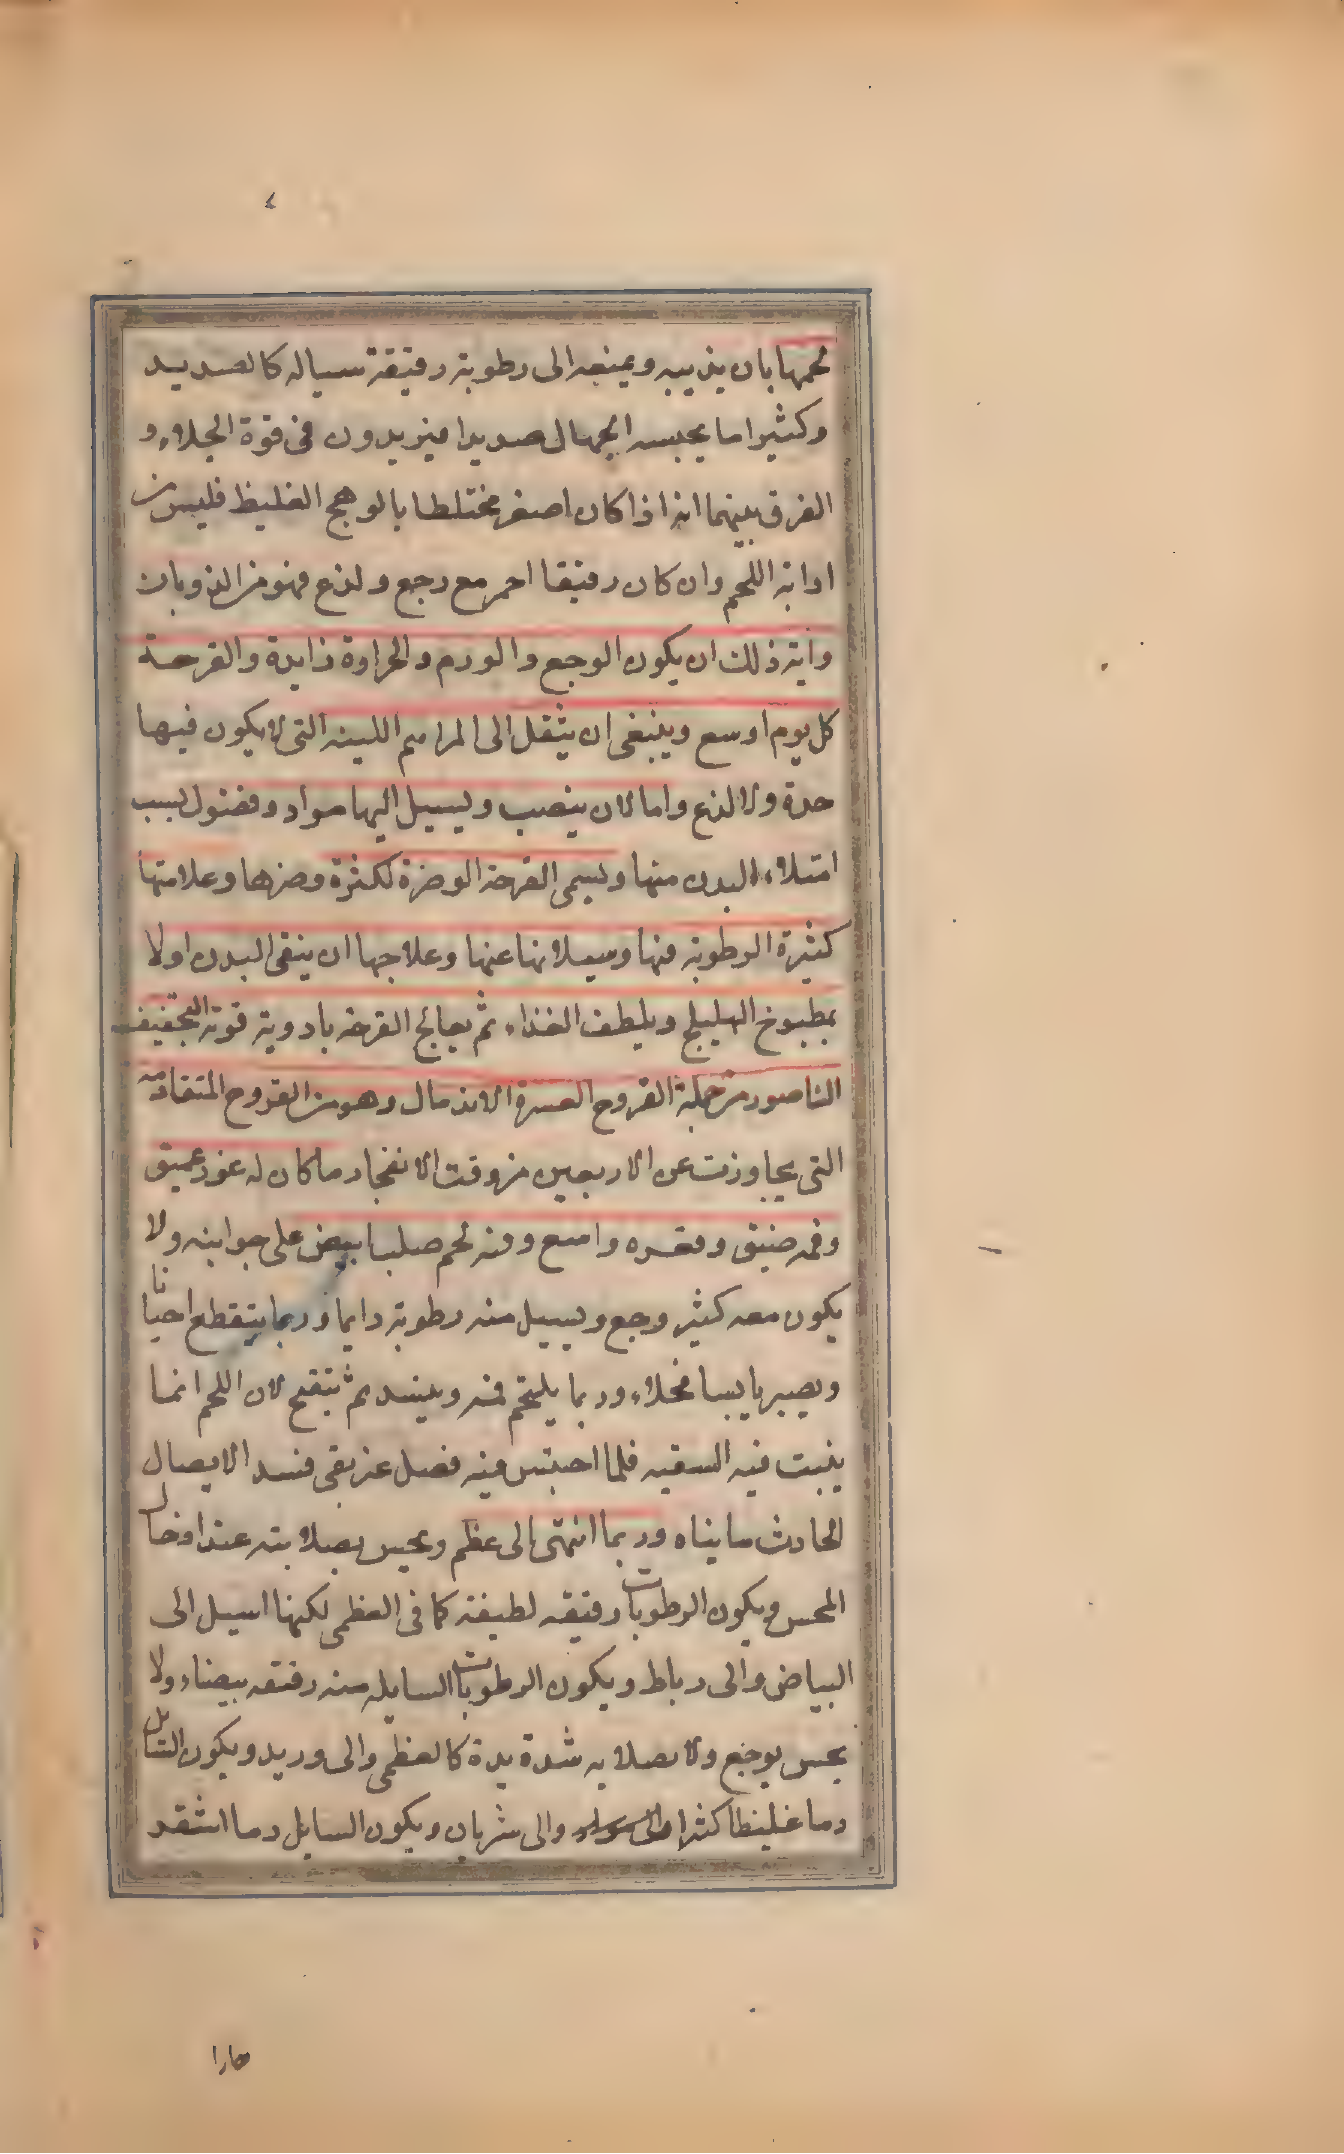 لحمها بان يذيبه ويمنعه الى رطوبة رقيقة سياله كالصديد
وكثيرا ما يحبسه الجهال صديدا فيزيدون فى قوة الجلاء و
الفرق بينهما انه اذا كان اصفر مختلطا بالوهج الغليظ فليس من
اذابة اللحم وان كان رقيقا احمر مع وجع ولذع فهو من الذوبان
وآية ذلك ان يكون الوجع والورم والحراوة زايدة والقرحة
كل يوم اوسع وينبغى ان يثقل الى المراهم اللينه التى لا يكون فيها
حدة ولا لذع واما لان ينصب ويسيل اليها مواد وفضول لسبب
امتلاء البدن منها ويسمى القرحة الوضرة لكثرة وضرها وعلامتها
كثرة الرطوبة فيها وسيلانها عنها وعلاجها ان ينقى البدن اولا
بمطبوخ الهليلج ويلطف الغذاء ثم يعالج القرحه بادوية قوية التجفيف
الناصور من جملة القروح العسرة الاندمال وهو من القروح المتقادمه
التى يجاوزت عن الاربعين من وقت الانفجار ما كان له غور عميق
وفمه ضيق وقعره واسع وفيه لحم صلب ابيض على جوانبه ولا
يكون معه كثير وجع ويسيل منه رطوبة دايما وربما يتقطع احيانا
ويصير يابسا فحلاء وربما يلتحم فمه وينسد ثم يتقيح لان اللحم انما
ينبت فيه السقيه فلما احتبس فيه فضل عن بقى فسد الايصال
الحادث ما بناه وربما انتهى الى عظم ويحس بصلابته عند ادخال
المحس ويكون الرطوبات رقيقه لطيفة كما فى العظمى لكنها اميل الى
البياض والى رباط ويكون الرطوبات السايله منه رقيقه بيضاء ولا
يحس بوجع ولا بصلابه شديدة كالعظمى والى وريد ويكون السائل
دما غليظا كثيرا والى شريان ويكون السايل دما اشقر
حارا